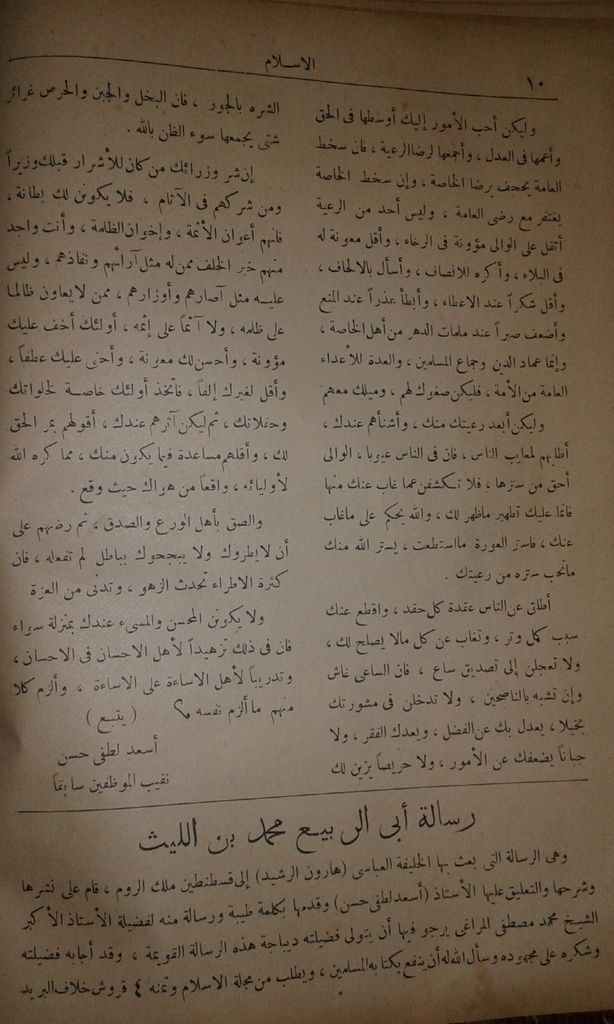 الاسلام
١٠
وليكن أحب الأمور إليك أوسطها فى الحق
وأعمها فى العدل ، وأجمعها لرضا الرعية ، فان سخط
العامة يجحف برضا الخاصة ، وإن سخط الخاصة
يغتفر مع رضى العامة ، وليس أحد من الرعية
أثقل على الوالى مؤونة فى الرخاء ، وأقل معونة له
فى البلاء ، وأكره للانصاف ، وأسأل بالالحاف ،
وأقل شكراً عند الاعطاء ، وأبطأ عذراً عند المنع
وأضعف صبراً عند ملمات الدهر من أهل الخاصة ،
وإنما عماد الدين وجماع المسلمين ، والعدة للأعداء
العامة من الأمة ، فليكن صغوك لهم ، وميلك معهم
وليكن أبعد رعيتك منك ، وأشنأهم عندك ،
أطلبهم لمعايب الناس ، فان فى الناس عيوبا ، الوالى
أحق من سترها ، فلا تكشفن عما غاب عنك منها
فانما عليك تطهير ماظهر لك ، والله يحكم على ماغاب
عنك ، فاستر العورة مااستطعت ، يستر الله منك
ماتحب ستره من رعيتك .
أطلق عن الناس عقدة كل حقد ، واقطع عنك
سبب كل وتر ، وتغاب عن كل مالا يصلح لك ،
ولا تعجلن إلى تصديق ساع ، فان الساعى غاش
وإن تشبه بالناصحين ، ولا تدخلن فى مشورتك
بخيلا ، يعدل بك عن الفضل ، ويعدك الفقر ، ولا
جباناً يضعفك عن الأمور ، ولا حريصاً يزين لك
الشره بالجور ، فان البخل والجبن والحرص غرائز
شتى يجمعها سوء الظن بالله .
إن شر وزرائك من كان للأشرار قبلك وزيراً
ومن شركهم فى الآثام ، فلا يكونن لك بطانة ،
فانهم أعوان الأئمة ، وإخوان الظلمة ، وأنت واجد
منهم خير الخلف ممن له مثل آرائهم ونفاذهم ، وليس
عليه مثل آصارهم وأوزارهم ، ممن لا يعاون ظالما
على ظلمه ، ولا آثماً على إثمه ، أولئك أخف عليك
مؤونة ، وأحسن لك معونة ، وأحنى عليك عطفاً ،
وأقل لغيرك إلفاً ، فاتخذ أولئك خاصة لخلواتك
وحفلاتك ، ثم ليكن آثرهم عندك ، أقولهم بمر الحق
لك ، وأقلهم مساعدة فيما يكون منك ، مما كره الله
لأوليائه ، واقعاً من هواك حيث وقع .
والصق بأهل الورع والصدق ، ثم رضهم على
أن لا يطروك ولا يبجحوك بباطل لم تفعله ، فان
كثرة الاطراء تحدث الزهو ، وتدنى من العزة
ولا يكونن المحسن والمسىء عندك بمنزلة سواء
فان فى ذلك تزهيداً لأهل الاحسان فى الاحسان ،
وتدريباً لأهل الاساءة على الاساءة ، وألزم كلا
منهم ماألزم نفسه ( يتبع )
أسعد لطفى حسن
نقيب الموظفين سابقاً
رسالة أبى الربيع محمد بن الليث
وهى الرسالة التى بعث بها الخليفة العباسى (هارون الرشيد) إلى قسطنطين ملك الروم ، قام على نشرها
وشرحها والتعليق عليها الأستاذ (أسعد لطفى حسن) وقدمها بكلمة طيبة ورسالة منه لفضيلة الأستاذ الأكبر
الشيخ محمد مصطفى المراغى يرجو فيها أن يتولى فضيلته ديباجة هذه الرسالة القويمة ، وقد أجابه فضيلته
وشكره على مجهوده وسأل الله له أن ينفع بكتابه المسلمين ، ويطلب من مجلة الاسلام وثمنه ٤ قروش خلاف البريد